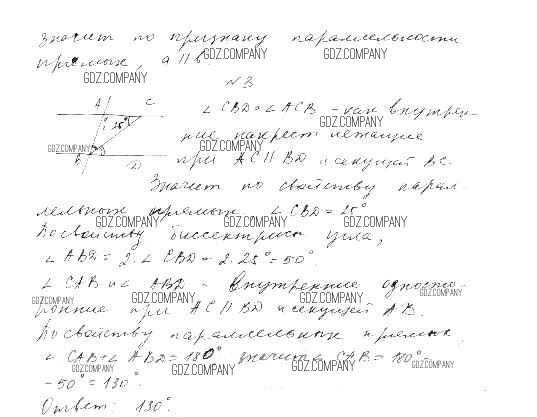 значит по признаку параллельности
прямых, a || b
GDZ.COMPANY GDZ.COMPANY
GDZ.COMPANY
№3
A C
25°
B D
∠ CBD и ∠ ACB - как внутрен-
GDZ.COMPANY
ние накрест лежащие
GDZ.COMPANY GDZ.COMPANY
при AC || BD и секущей BC.
Значит по свойству парал-
лельных прямых ∠ CBD = 25°
GDZ.COMPANY GDZ.COMPANY GDZ.COMPANY
По свойству биссектрисы угла,
∠ ABD = 2·∠ CBD = 2·25° = 50°.
∠ CAB и ∠ ABD - внутренние односто-
GDZ.COMPANY GDZ.COMPANY GDZ.COMPANY GDZ.COMPANY
ронние при AC || BD и секущей AB.
По свойству параллельных прямых
∠ CAB + ∠ ABD = 180° значит ∠ CAB = 180° -
GDZ.COMPANY GDZ.COMPANY GDZ.COMPANY GDZ.COMPANY
- 50° = 130°.
Ответ: 130°.